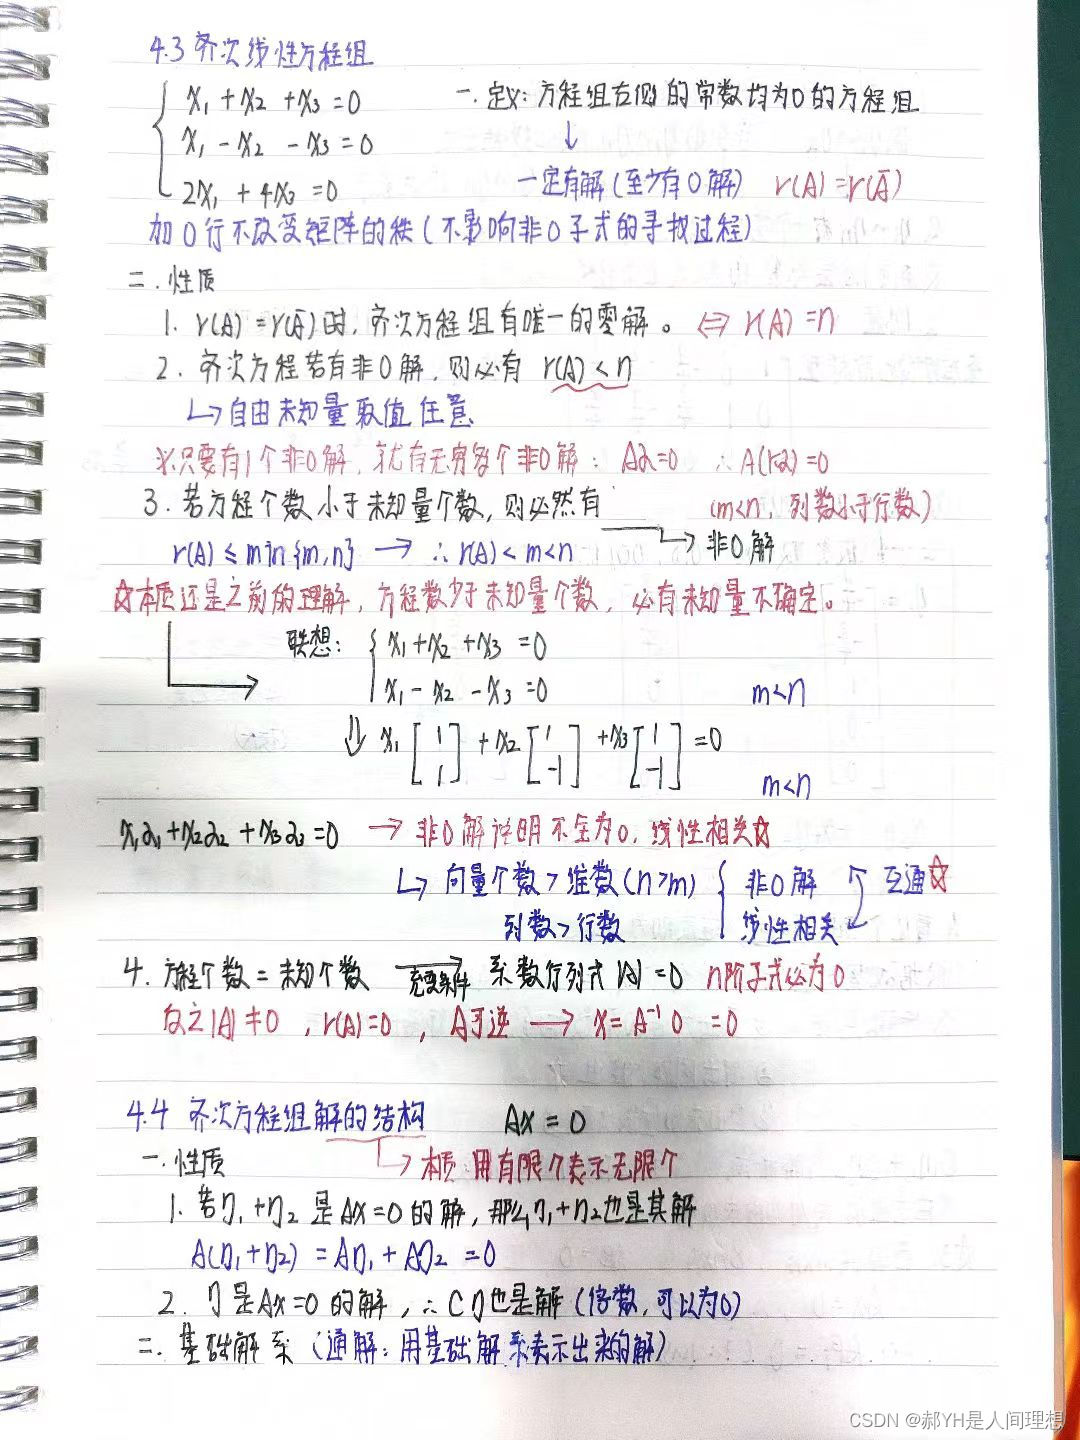 4.3 齐次线性方程组
x₁ + x₂ + x₃ = 0
一. 定义: 方程组右侧的常数均为0的方程组
x₁ - x₂ - x₃ = 0
↓
2x₁ + 4x₂ = 0
一定有解(至少有0解) r(A)=r(Ā)
加0行不改变矩阵的秩(不影响非0子式的寻找过程)
二. 性质
1. r(A)=r(Ā)时, 齐次方程组有唯一的零解。 ⇔ r(A)=n
2. 齐次方程若有非0解, 则必有 r(A)<n
↳自由未知量取值任意
※只要有1个非0解, 就有无穷多个非0解: Aα=0 ∴A(kα)=0
3. 若方程个数小于未知量个数, 则必然有 (m<n, 列数小于行数)
r(A)≤min{m,n} → ∴r(A)<m<n → 非0解
☆本质还是之前的理解, 方程数少于未知量个数, 必有未知量不确定。
联想: x₁+x₂+x₃=0
x₁-x₂-x₃=0 m<n
⇓ x₁[1 1]+x₂[1 -1]+x₃[1 -1]=0
m<n
x₁α₁+x₂α₂+x₃α₃=0 → 非0解说明不全为0, 线性相关☆
↳ 向量个数>维数(n>m) { 非0解 互通☆
列数>行数 线性相关
4. 方程个数=未知个数 充要条件 系数行列式|A|=0 n阶子式必为0
反之|A|≠0, r(A)=0, A可逆 → x=A⁻¹0 =0
4.4 齐次方程组解的结构 Ax=0
一. 性质 ↳本质 用有限个表示无限个
1. 若η₁+η₂是Ax=0的解, 那么η₁+η₂也是其解
A(η₁+η₂)=Aη₁+Aη₂=0
2. η是Ax=0的解, ∴Cη也是解(倍数, 可以为0)
二. 基础解系(通解: 用基础解系表示出来的解)
CSDN @郝YH是人间理想